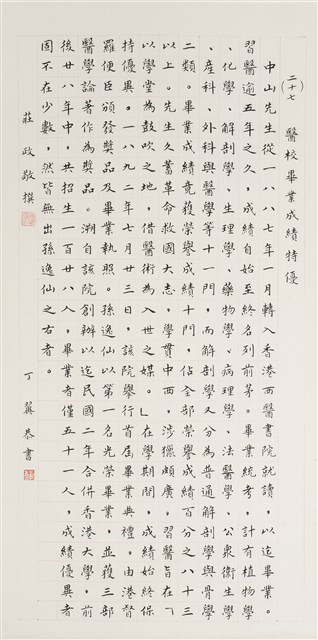 (二十七)
醫校畢業成績特優
中山先生從一八八七年一月轉入香港西醫書院就讀，以迄畢業。
習醫逾五年之久，成績自始至終名列前茅。畢業統考，計有植物學
、化學、解剖學、生理學、藥物學、病理學、法醫學、公眾衛生學
、產科、外科與醫學等十一門，而解剖學又分為普通解剖學與骨學
二類。畢業成績竟獲榮譽成績十門，佔全部榮譽成績百分之八十三
以上。先生久蓄革命救國大志，學貫中西，涉獵頗廣。習醫旨在「
以學堂為鼓吹之地，借醫術為入世之媒。」在學期間，成績始終保
持優異。一八九二年七月廿三日，該院舉行首屆畢業典禮。由港督
羅便臣頒發獎品及畢業執照。孫逸仙以第一名光榮畢業，並獲三部
醫學論著作為獎品。溯自該院創辦以迄民國二年合併香港大學，前
後廿八年中，共招生一百廿八人，畢業者僅五十一人，成績優異者
固不在少數，然皆無出孫逸仙之右者。
莊政敬撰
丁冀恭書